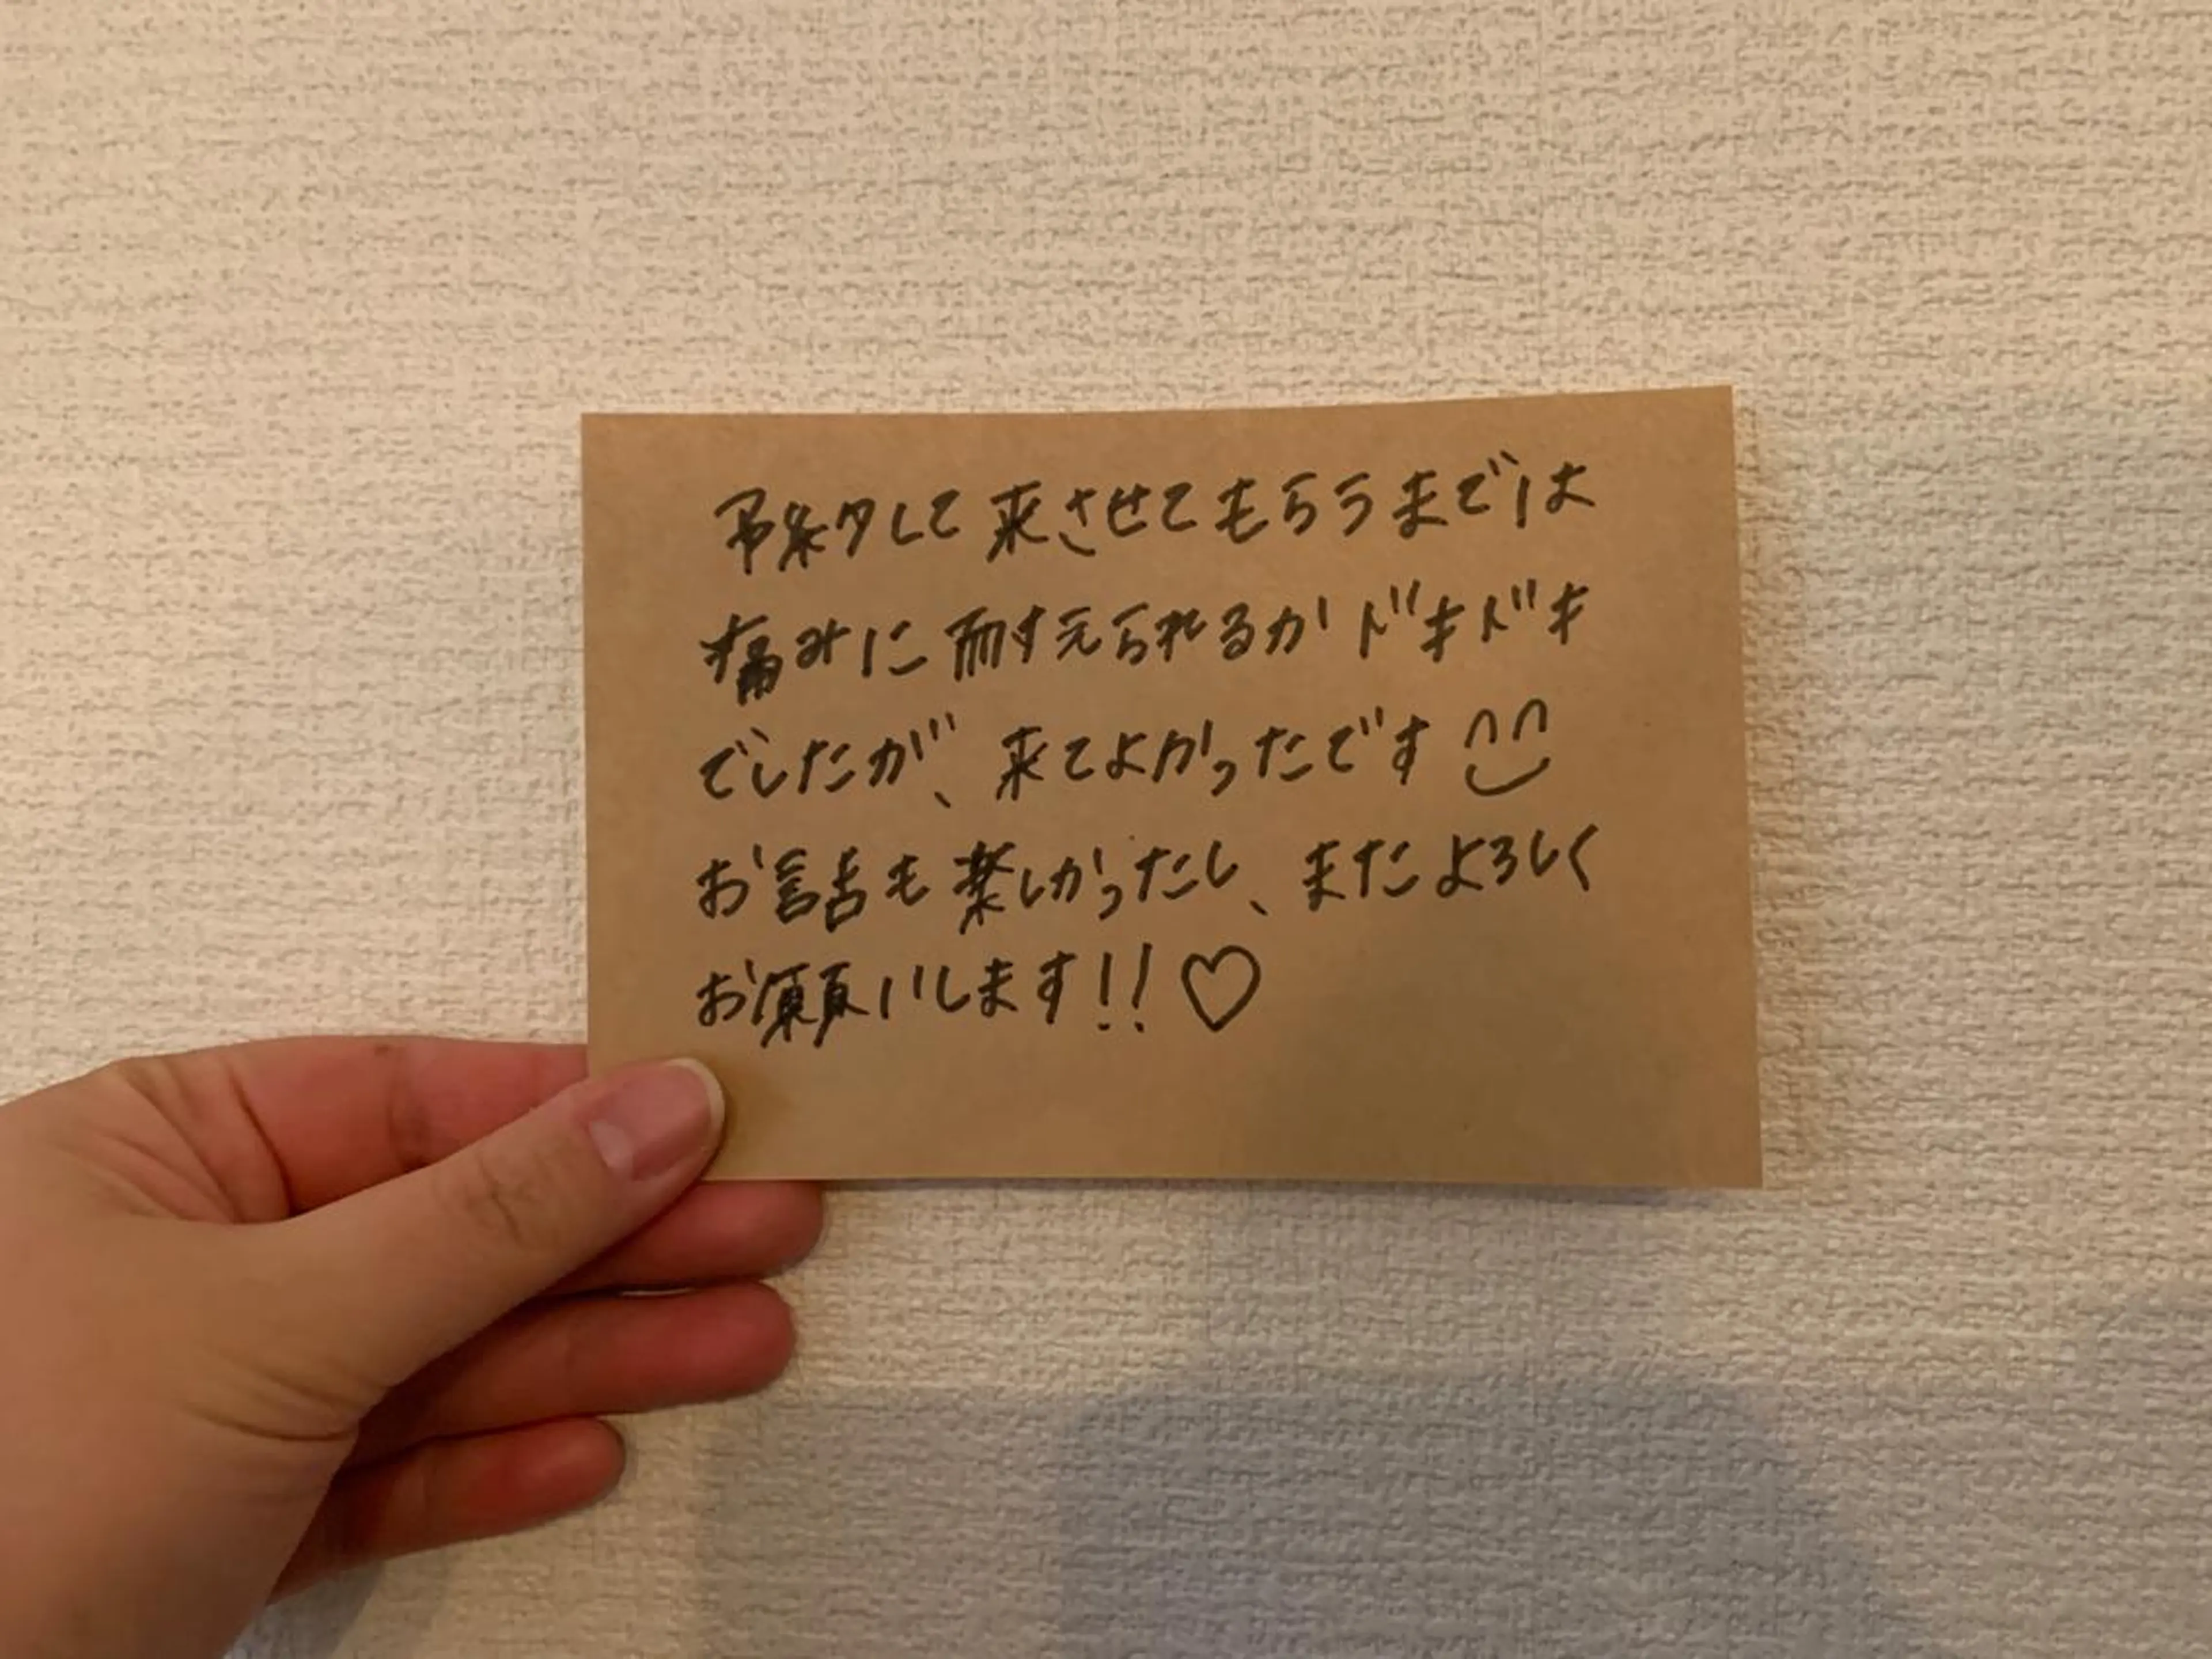 予約して来させてもらうまでは
痛みに耐えられるかドキドキ
でしたが、来てよかったです
お話も楽しかったし、またよろしく
お願いします!!♡